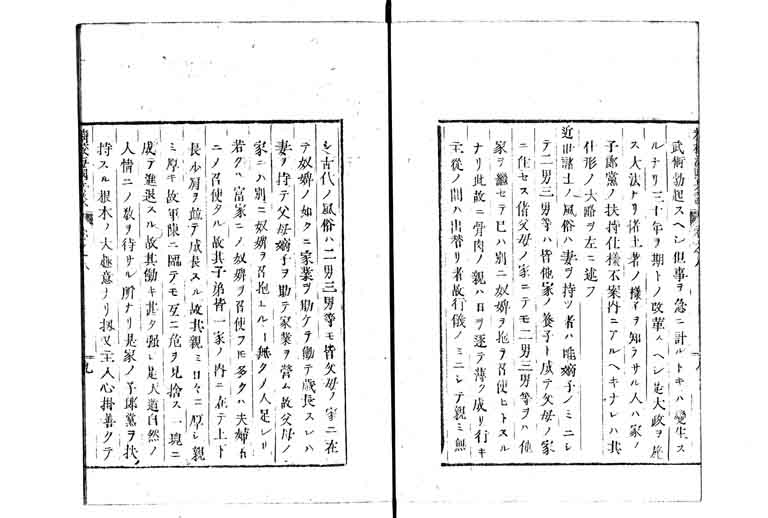 武術勃起スヘシ但事ヲ急ニ計ルトキハ變生ス
ルナリ三十年ヲ期トノ改革スヘシ是大政ヲ施
ス大法ナリ偖土着ノ様子ヲ知ラサル人ハ家ノ
子郎黨ノ扶持仕様不案内ニアルヘキナレハ其
仕形ノ大略ヲ左ニ述フ
近世諸士ノ風俗ハ妻ヲ持ツ者ハ唯嫡子ノミニシ
テ二男三男等ハ皆他家ノ養子ト成テ父母ノ家
ニ住セス偖父母ノ家ニテモ二男三男等ヲハ他
家ヲ繼セテ已ハ別ニ奴婢ヲ抱ヘ召使ヒトスル
ナリ此故ニ骨肉ノ親ハ日ヲ逐テ薄ク成リ行キ
主從ノ間ハ出替リ者故行儀ノミニシテ親ミ無
シ古代ノ風俗ハ二男三男等モ皆父母ノ家ニ在
テ奴婢ノ如クニ家業ヲ助ケテ働テ歳長スレハ
妻ヲ持テ父母嫡子ヲ助テ家業ヲ營ム故父母ノ
家ニハ別ニ奴婢ヲ召抱エルヿ無クノ人足レリ
若クハ富家ニノ奴婢ヲ召使フモ多クハ夫婦カ
ニノ召使タル故其子弟皆一家ノ内ニ在テ上下
長少肩ヲ竝テ成長スル故其親ミ日々ニ厚シ親
ミ厚キ故軍陳ニ臨テモ互ニ危ヲ見捨ス一塊ニ
成テ進退スル故其働キ甚タ强シ是天道自然ノ
人情ニノ教ヲ待サル所ナリ是家ノ子郎黨ヲ扶
持スル根本ノ大趣意ナリ扨又主人心掛善クテ
九